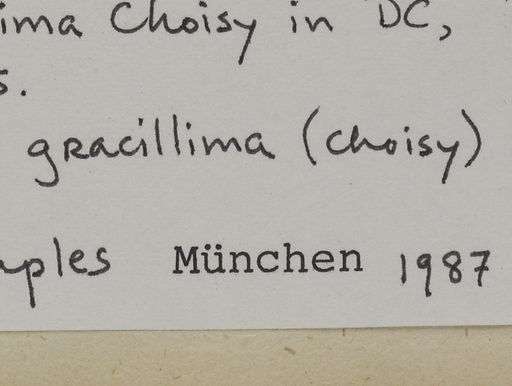 ima Choisy in DC,
s.
gracillima (Choisy)
aples München 1987